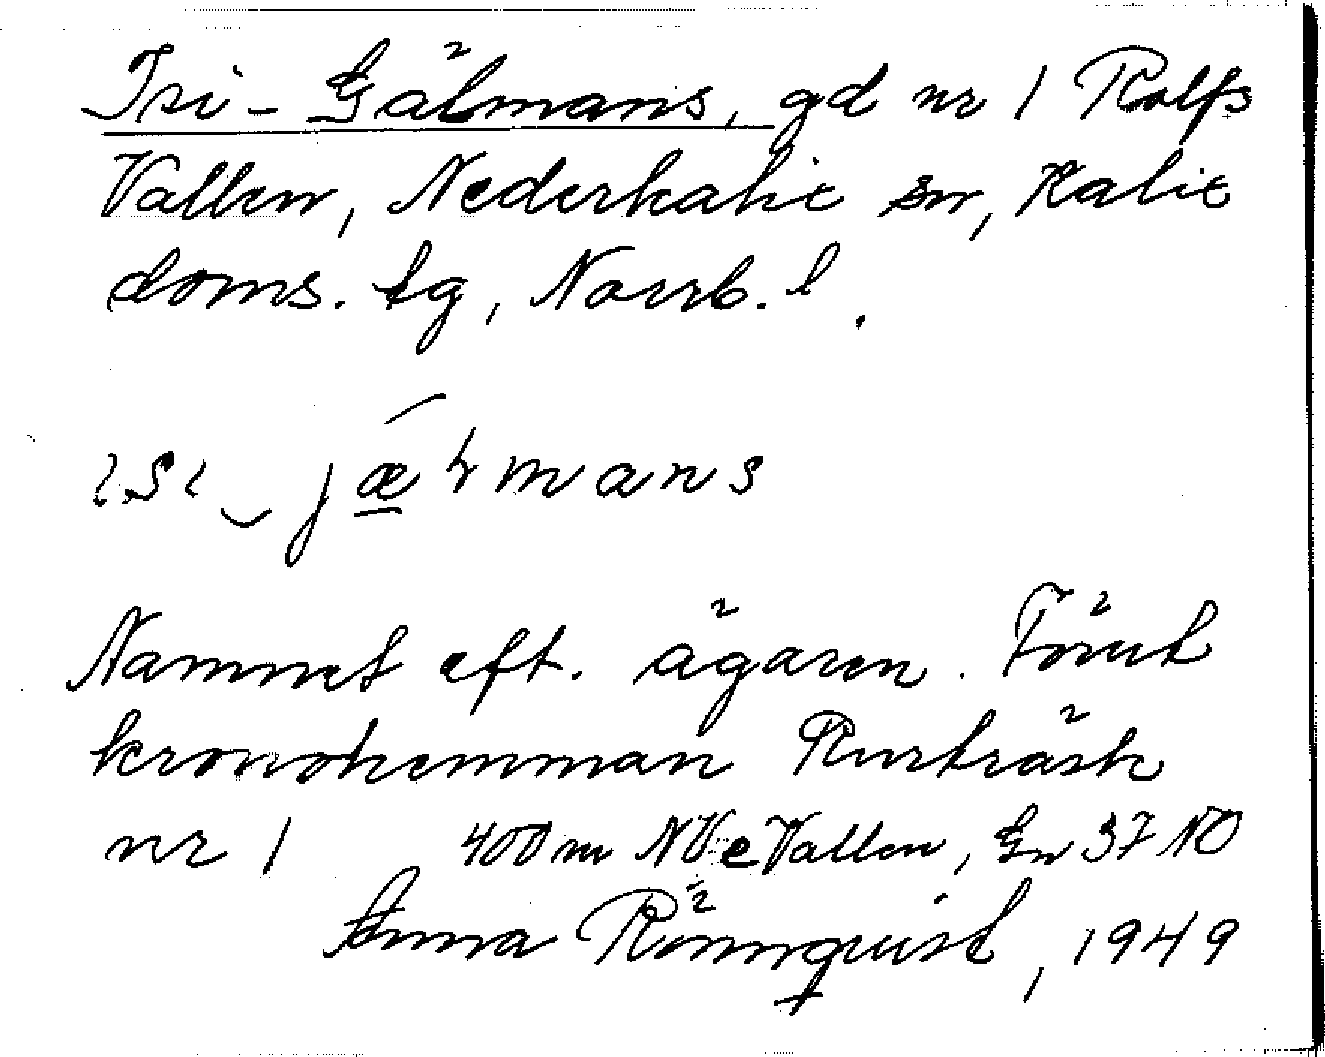 Isi-Gälmans, gd nr 1 Rolfs
Vallen, Nederkalix sn, Kalix
doms. tg, Norrb. l.
isi‿jǽ̲ɽmans
Namnet eft. ägaren. Förut
kronohemman Rurträsk
nr 1 400 m NV e Vallen, Gn 37 NO
Anna Rönnquist, 1949